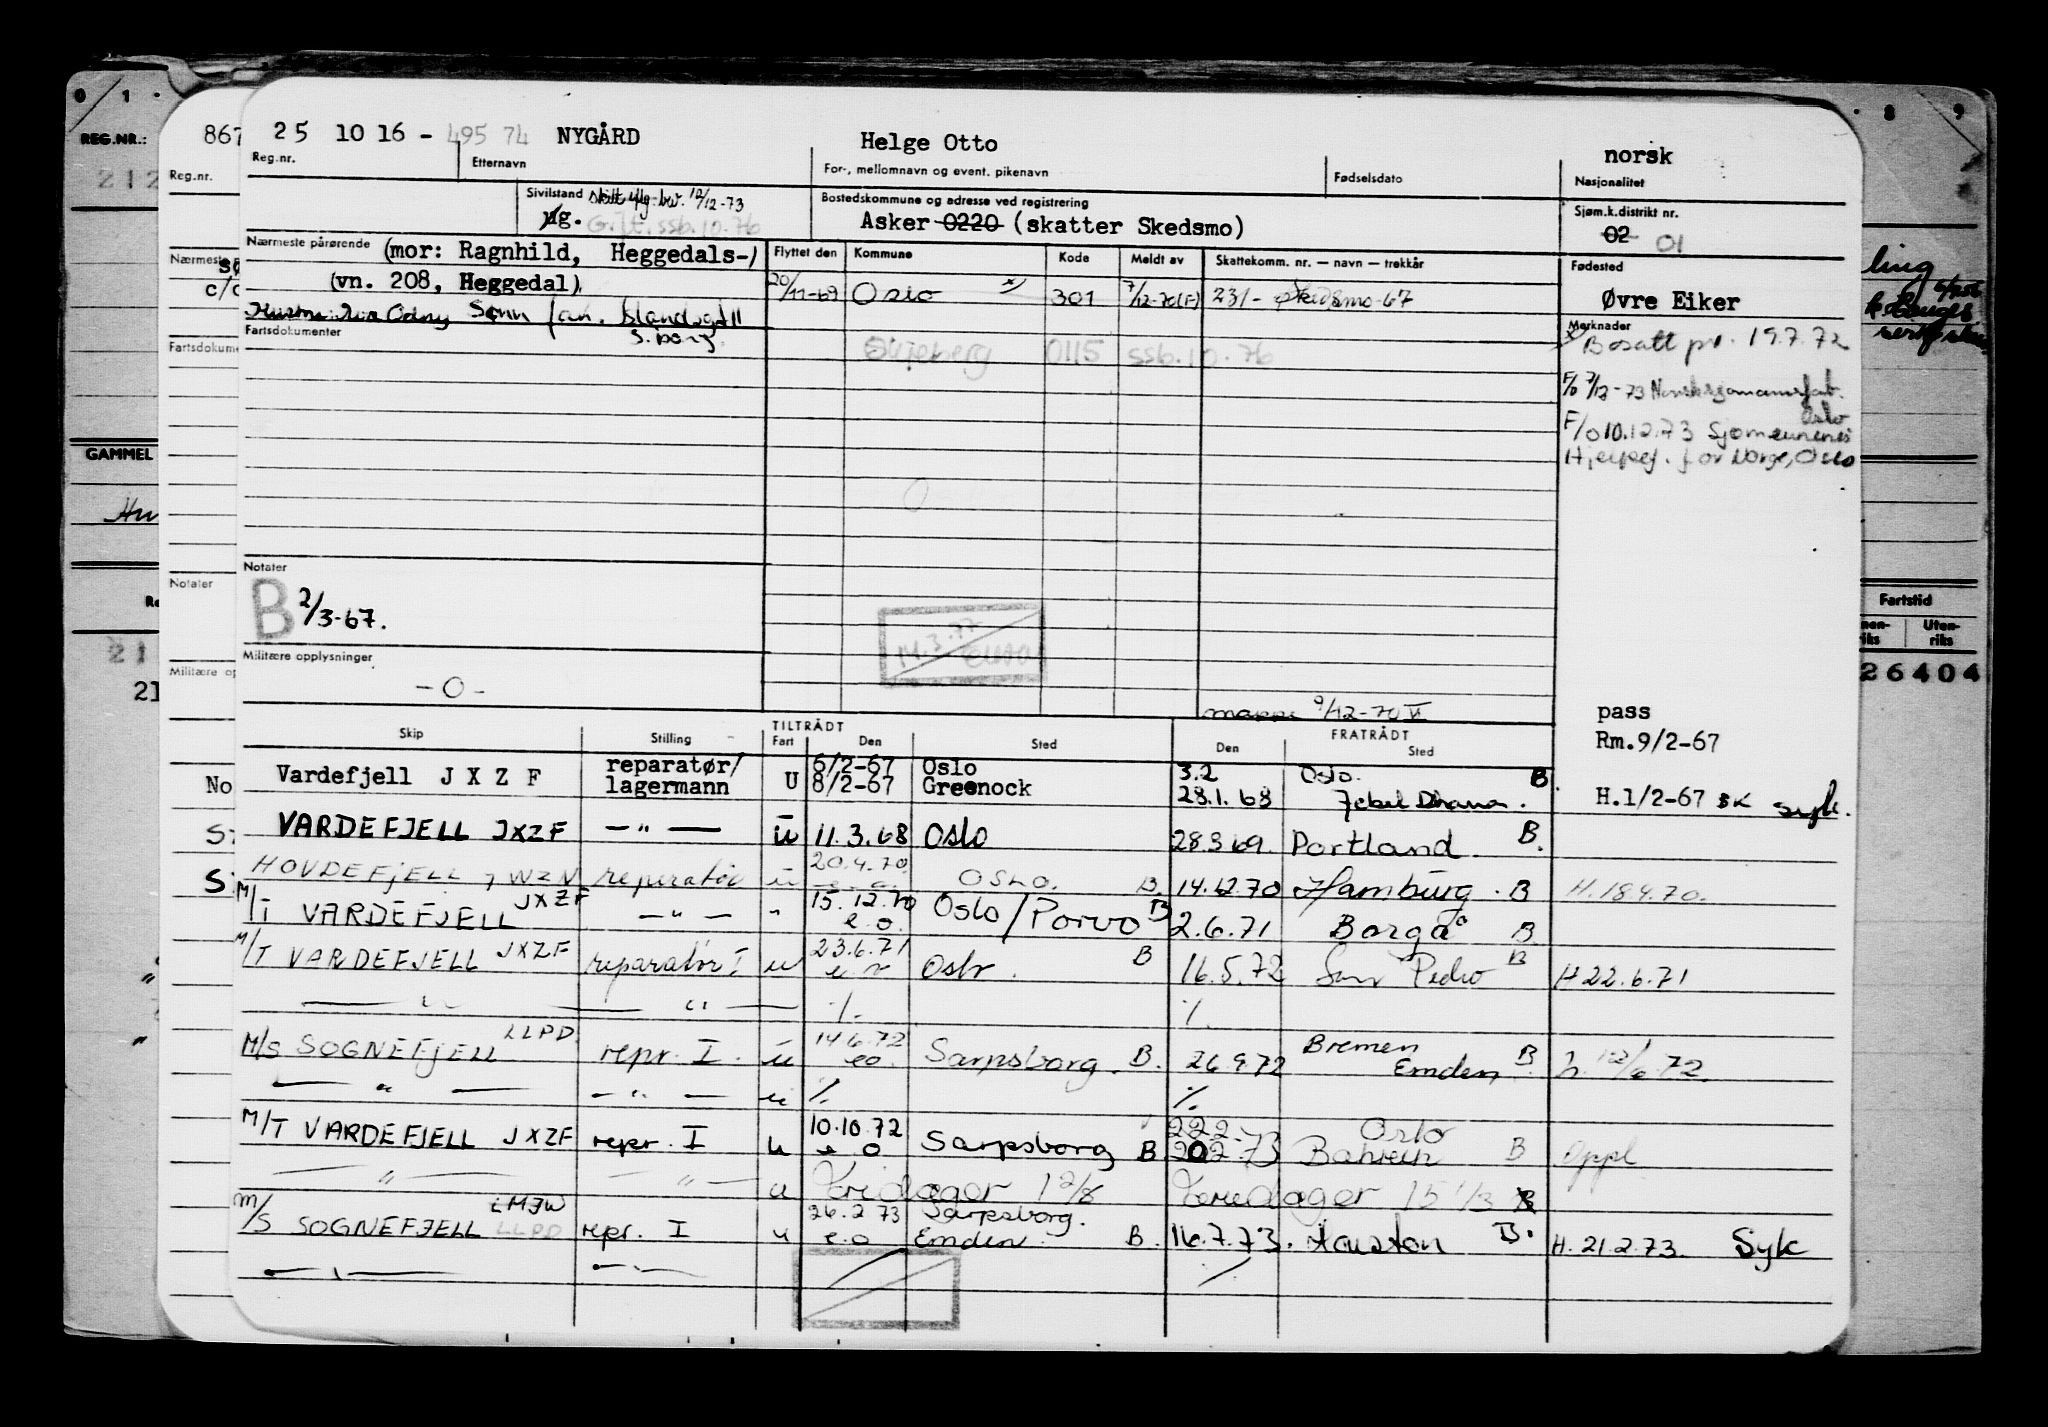 25 10 16 - 495 74 NYGÅRD Helge Otto norsk
Reg.nr. Etternavn For-, mellomnavn og event. pikenavn Fødselsdato Nasjonalitet
Sivilstand 12-73 Bostedskommune og adresse ved registrering Sjøm.k.distrikt nr.
ug. Gift. ssb. 10. 76 Asker 0220 (skatter Skedsmo) 02 01
Nærmeste pårørende (mor: Ragnhild, Heggedals-) Flyttet den Kommune Kode Meldt av Skattekomm. nr. — navn — trekkår Fødested
(vn. 208, Heggedal) 20/11-69 Oslo x) 301 7/12-70(F) 231 - Skedsmo-67 Øvre Eiker
Odny
S.borg
Fartsdokumenter Skjeberg 0115 ssb. 10. 76 Merknader
x) Bosatt pr. 19.7.72
F/o 7/12-73 Oslo
F/o 10.12.73 Sjømennenes
Hjelpef. for Norge, Oslo
Notater
B 2/3-67.
14.3.77
Militære opplysninger
- O -
9/12-70 pass
Rm.9/2-67
Skip Stilling TILTRÅDT Fart Den Sted FRATRÅDT Den Sted
Vardefjell J X Z F reparatør/ lagermann U 6/2-67 Oslo 3.2 Oslo. B
8/2-67 Greenock 28.1.68 Jebel Dhanna. H.1/2-67 BK syk.
VARDEFJELL JXZF — " — u 11.3.68 Oslo 28.3.69. Portland. B.
HOVDEFJELL JWZN reparatør u 20.4.70. e.o. OSLO. B. 14.12.70 Hamburg. B H.18.4.70.
M/T VARDEFJELL JXZF — " — " 15.12.70 e.o. Oslo/Porvo B 2.6.71 Borgå B
M/T VARDEFJELL JXZF reparatør I u 23.6.71 Oslo. B 16.5.72 San Pedro B H 22.6.71
— " — — " — %. %.
M/S SOGNEFJELL LLPD. repr. I. u 14.6.72 eo. Sarpsborg. B. 26.9.72 Bremen Emden B h. 12/6.72.
— " — — " — u % %.
M/T VARDEFJELL JXZF repr. I u 10.10.72 e o Sarpsborg B 22.2.73 Oslo
20.2.73 Bahrein B Oppl
— " — — " — u Feriedager 12/8 Feriedager 15 1/3 B
M/S SOGNEFJELL LMJW LLPD repr. I u 26.2.73 e.o Sarpsborg. Emden. B. 16.7.73. Houston B. H. 21.2.73. Syk
— " — — " —
0 1
REG.NR.:
212
GAMMEL
867
Reg.nr.
c/o
Notater
No
8 9
ling
Fartstid
Uten-
riks
26404